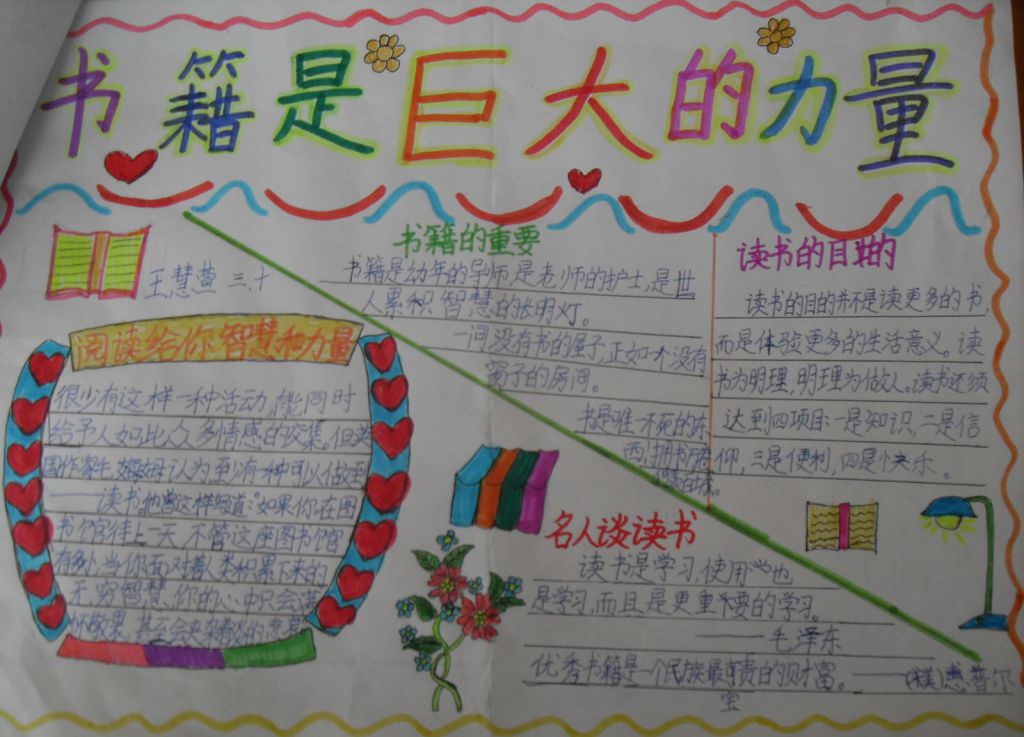 书籍是巨大的力量
王慧萱 三、十
书籍的重要
书籍是幼年的导师,是老师的护士,是世
人累积智慧的长明灯。
一间没有书的屋子,正如一个没有
窗子的房间。
书是唯一不死的东
西
读书的目的
读书的目的并不是读更多的书,
而是体验更多的生活意义。读
书为明理,明理为做人。读书还须
达到四项目:一是知识,二是信
仰,三是便利,四是快乐。
阅读给你智慧和力量
很少有这样一种活动,能同时
给予人如此众多情感的交集。但英
国作家毛姆认为至少有一种可以做到
——读书,他曾这样写道:“如果你在图
书馆待上一天,不管这座图书馆
有多小,当你面对着人类积累下来的
无穷智慧,你的心中只会满
怀敬畏,甚至会夹杂着淡淡的悲哀
名人谈读书
读书是学习,使用也
是学习,而且是更重要的学习。
——毛泽东
优秀书籍是一个民族最宝贵的财富。——(英)惠普尔
宝